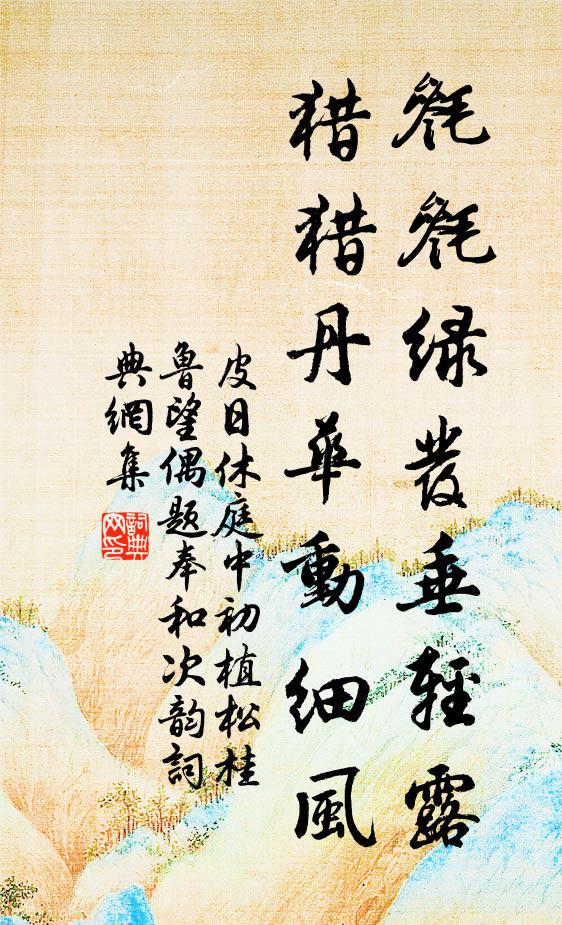 毿毿緑發垂輕露
猎猎丹華動細風
皮日休庭中初植松桂
魯望偶題奉和次韵詞
典網集
詞典
网印